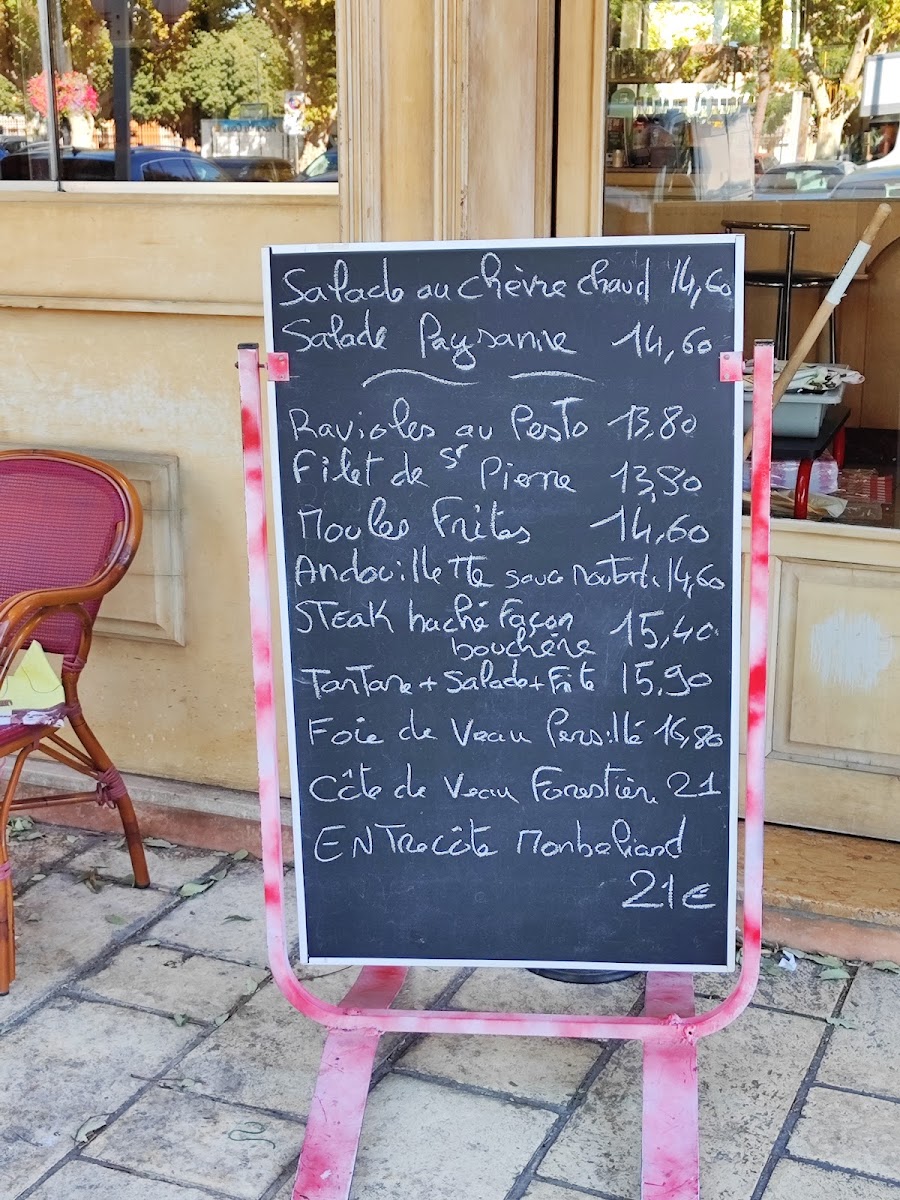 Salade au chèvre chaud 14,60
Salade Paysanne 14,60
Ravioles au Pesto 13,80
Filet de St Pierre 13,80
Moules Frites 14,60
Andouillette sauce Moutarde 14,60
STEAK haché Façon 15,40
bouchère
TarTare + Salade + Frite 15,90
Foie de Veau Persillé 16,80
Côte de Veau Forestière 21
ENTrecôte Monbeliard
21€